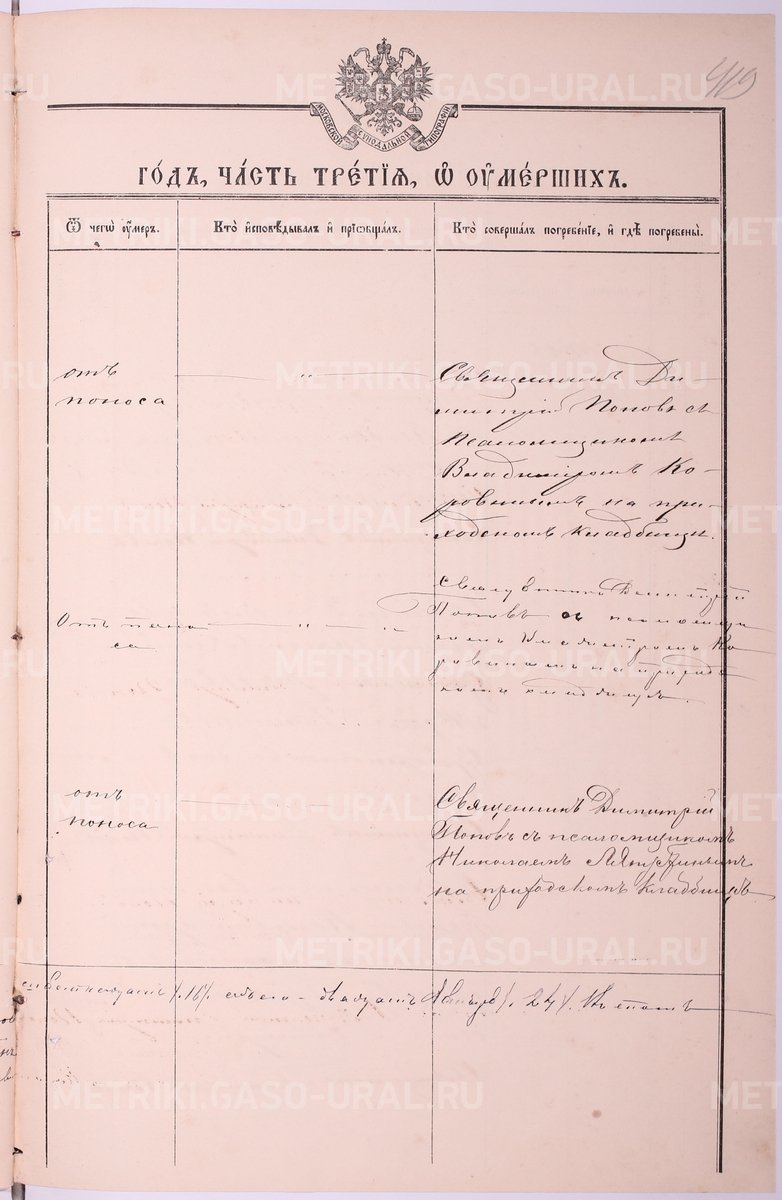 419
МОСКОВСКОЙ СѴНОДАЛЬНОЙ ТИПОГРАФІИ
ГО́ДЪ, ЧА́СТЬ ТРЕ́ТІѦ, Ѡ ОУМЕ́РШИХЪ.
Ѿ чегѡ̀ оу҆́меръ.
Кто̀ и҆сповѣ́дывалъ и҆ прїѡбща́лъ.
Кто̀ соверша́лъ погребе́нїе, и҆ гдѣ̀ погребены̀.
отъ
поноса
— „ —
Священникъ Ди-
митрій Поповъ съ
Псаломщикомъ
Владимромъ Ко-
ровинымъ на при-
ходскомъ кладбищѣ.
Отъ поно
са
— „ — „
Священникъ Димитрій
Поповъ съ псаломщи
комъ Владимромъ Ко
ровинымъ на приход
комъ кладбищѣ.
отъ
поноса
Священникъ Димитрій
Поповъ съ псаломщикомъ
Николаемъ
на приходскомъ кладбищѣ.
/.16/. всего двадцать /.24/. Въ томъ
METRIKI.GASO-URAL.RU